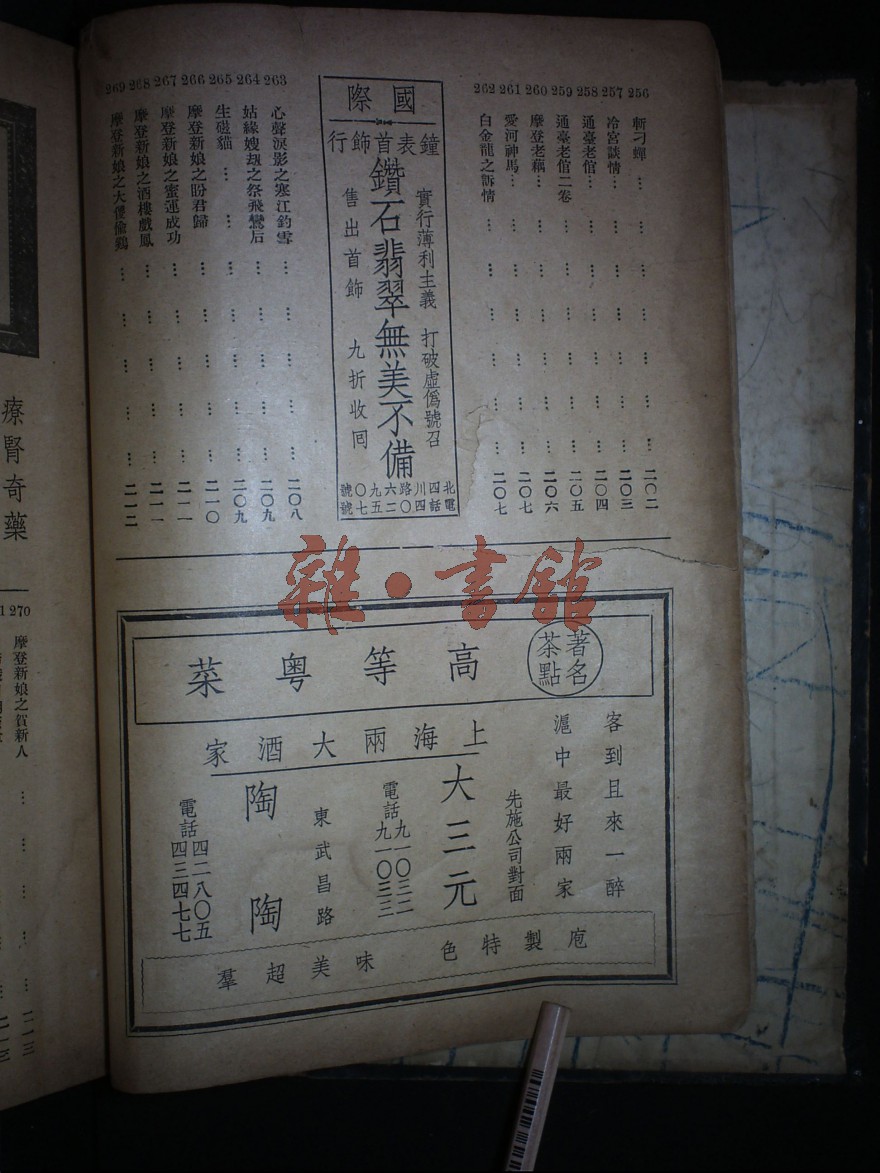 256 斬刁蟬 … … … … … … 二〇二
257 冷宮談情 … … … … … … 二〇三
258 通臺老倌 … … … … … … 二〇四
259 通臺老倌二卷 … … … … … 二〇五
260 摩登老藕 … … … … … … 二〇六
261 愛河神馬 … … … … … … 二〇七
262 白金龍之訴情 … … … … … 二〇七
國際
鐘表首飾行
實行薄利主義 打破虛僞號召
鑽石翡翠無美不備
售出首飾 九折收囘
北四川路六九〇號
電話四〇二五七號
263 心聲淚影之寒江釣雪 … … … … 二〇八
264 姑緣嫂刼之祭飛鸞后 … … … … 二〇九
265 生磁貓 … … … … … … 二〇九
266 摩登新娘之盼君歸 … … … … 二一〇
267 摩登新娘之蜜運成功 … … … … 二一一
268 摩登新娘之酒樓戲鳳 … … … … 二一一
269 摩登新娘之大儍偷鷄 … … … … 二一二
雜·書館
著名茶點
高等粤菜
客到且來一醉
滬中最好兩家
上海兩大酒家
先施公司對面
大三元
電話九一〇三二
九一〇三三
東武昌路
陶陶
電話四二八〇五
四三四七七
庖製特色 味美超羣
療腎奇藥
270 摩登新娘之賀新人 … … … 二一三